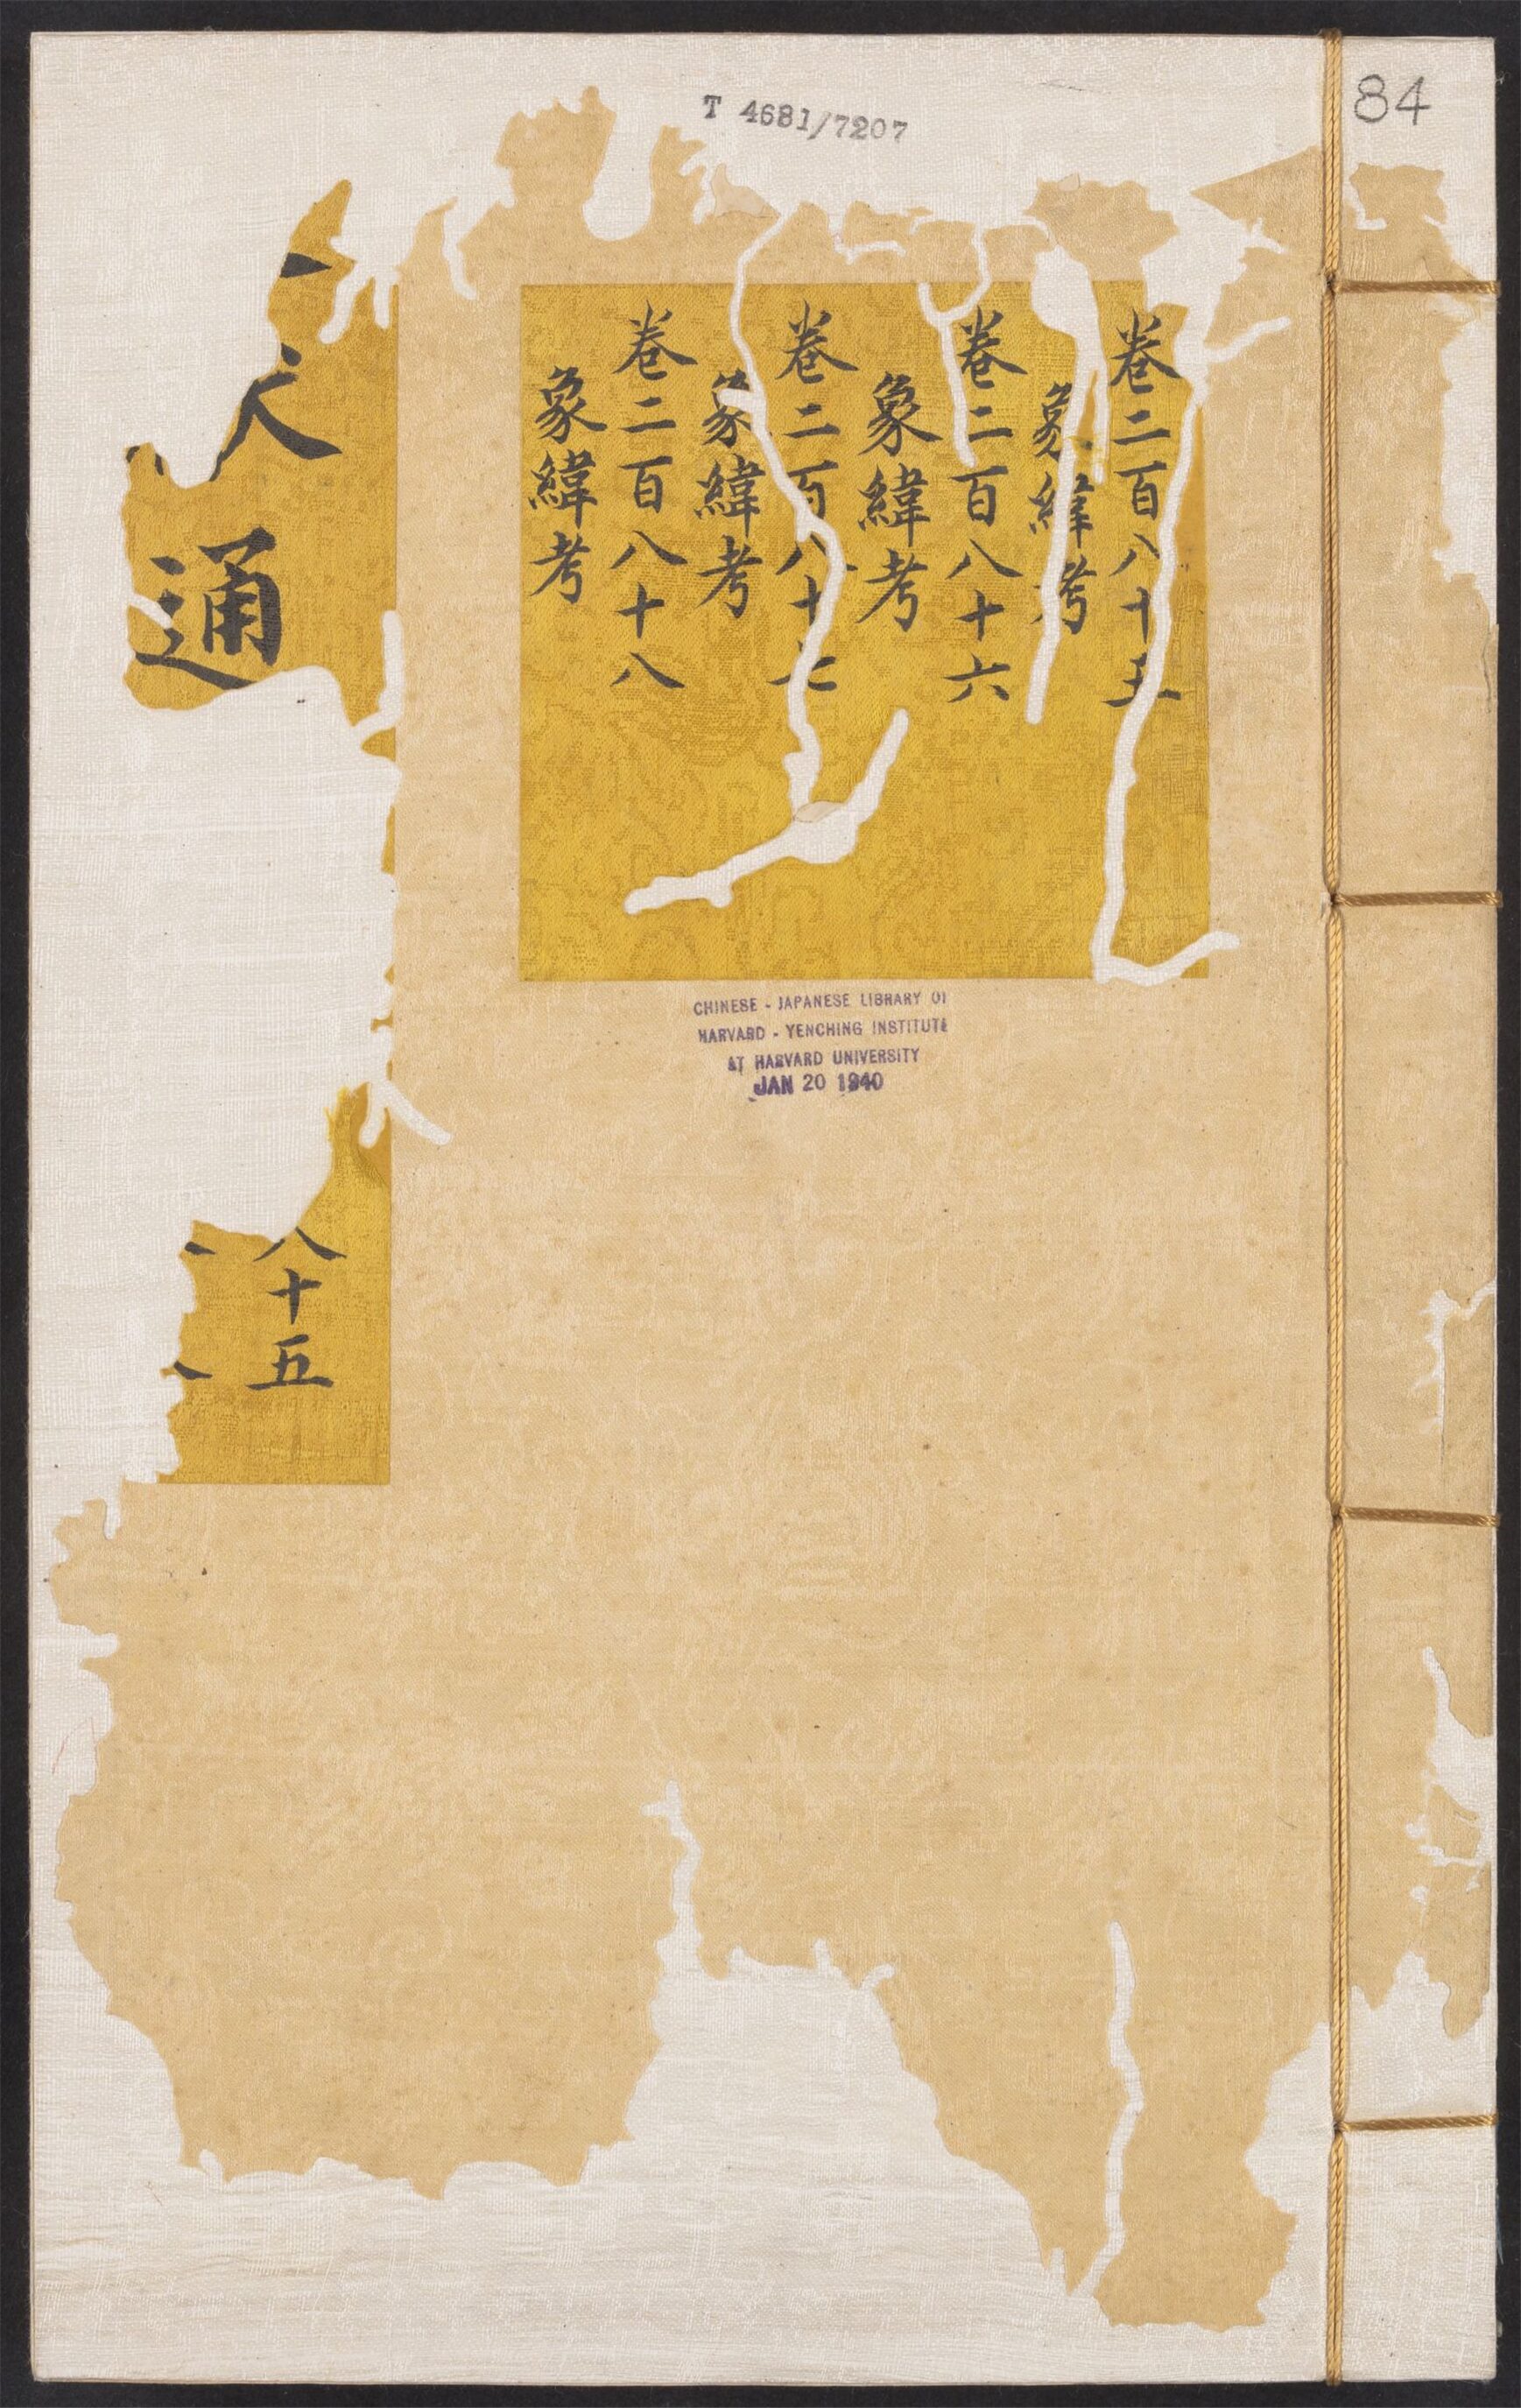 T 4681/7207
84
卷二百八十五
象緯考
卷二百八十六
象緯考
卷二百八十七
象緯考
卷二百八十八
象緯考
通
八十五
CHINESE - JAPANESE LIBRARY OF
HARVARD - YENCHING INSTITUTE
AT HARVARD UNIVERSITY
JAN 20 1940